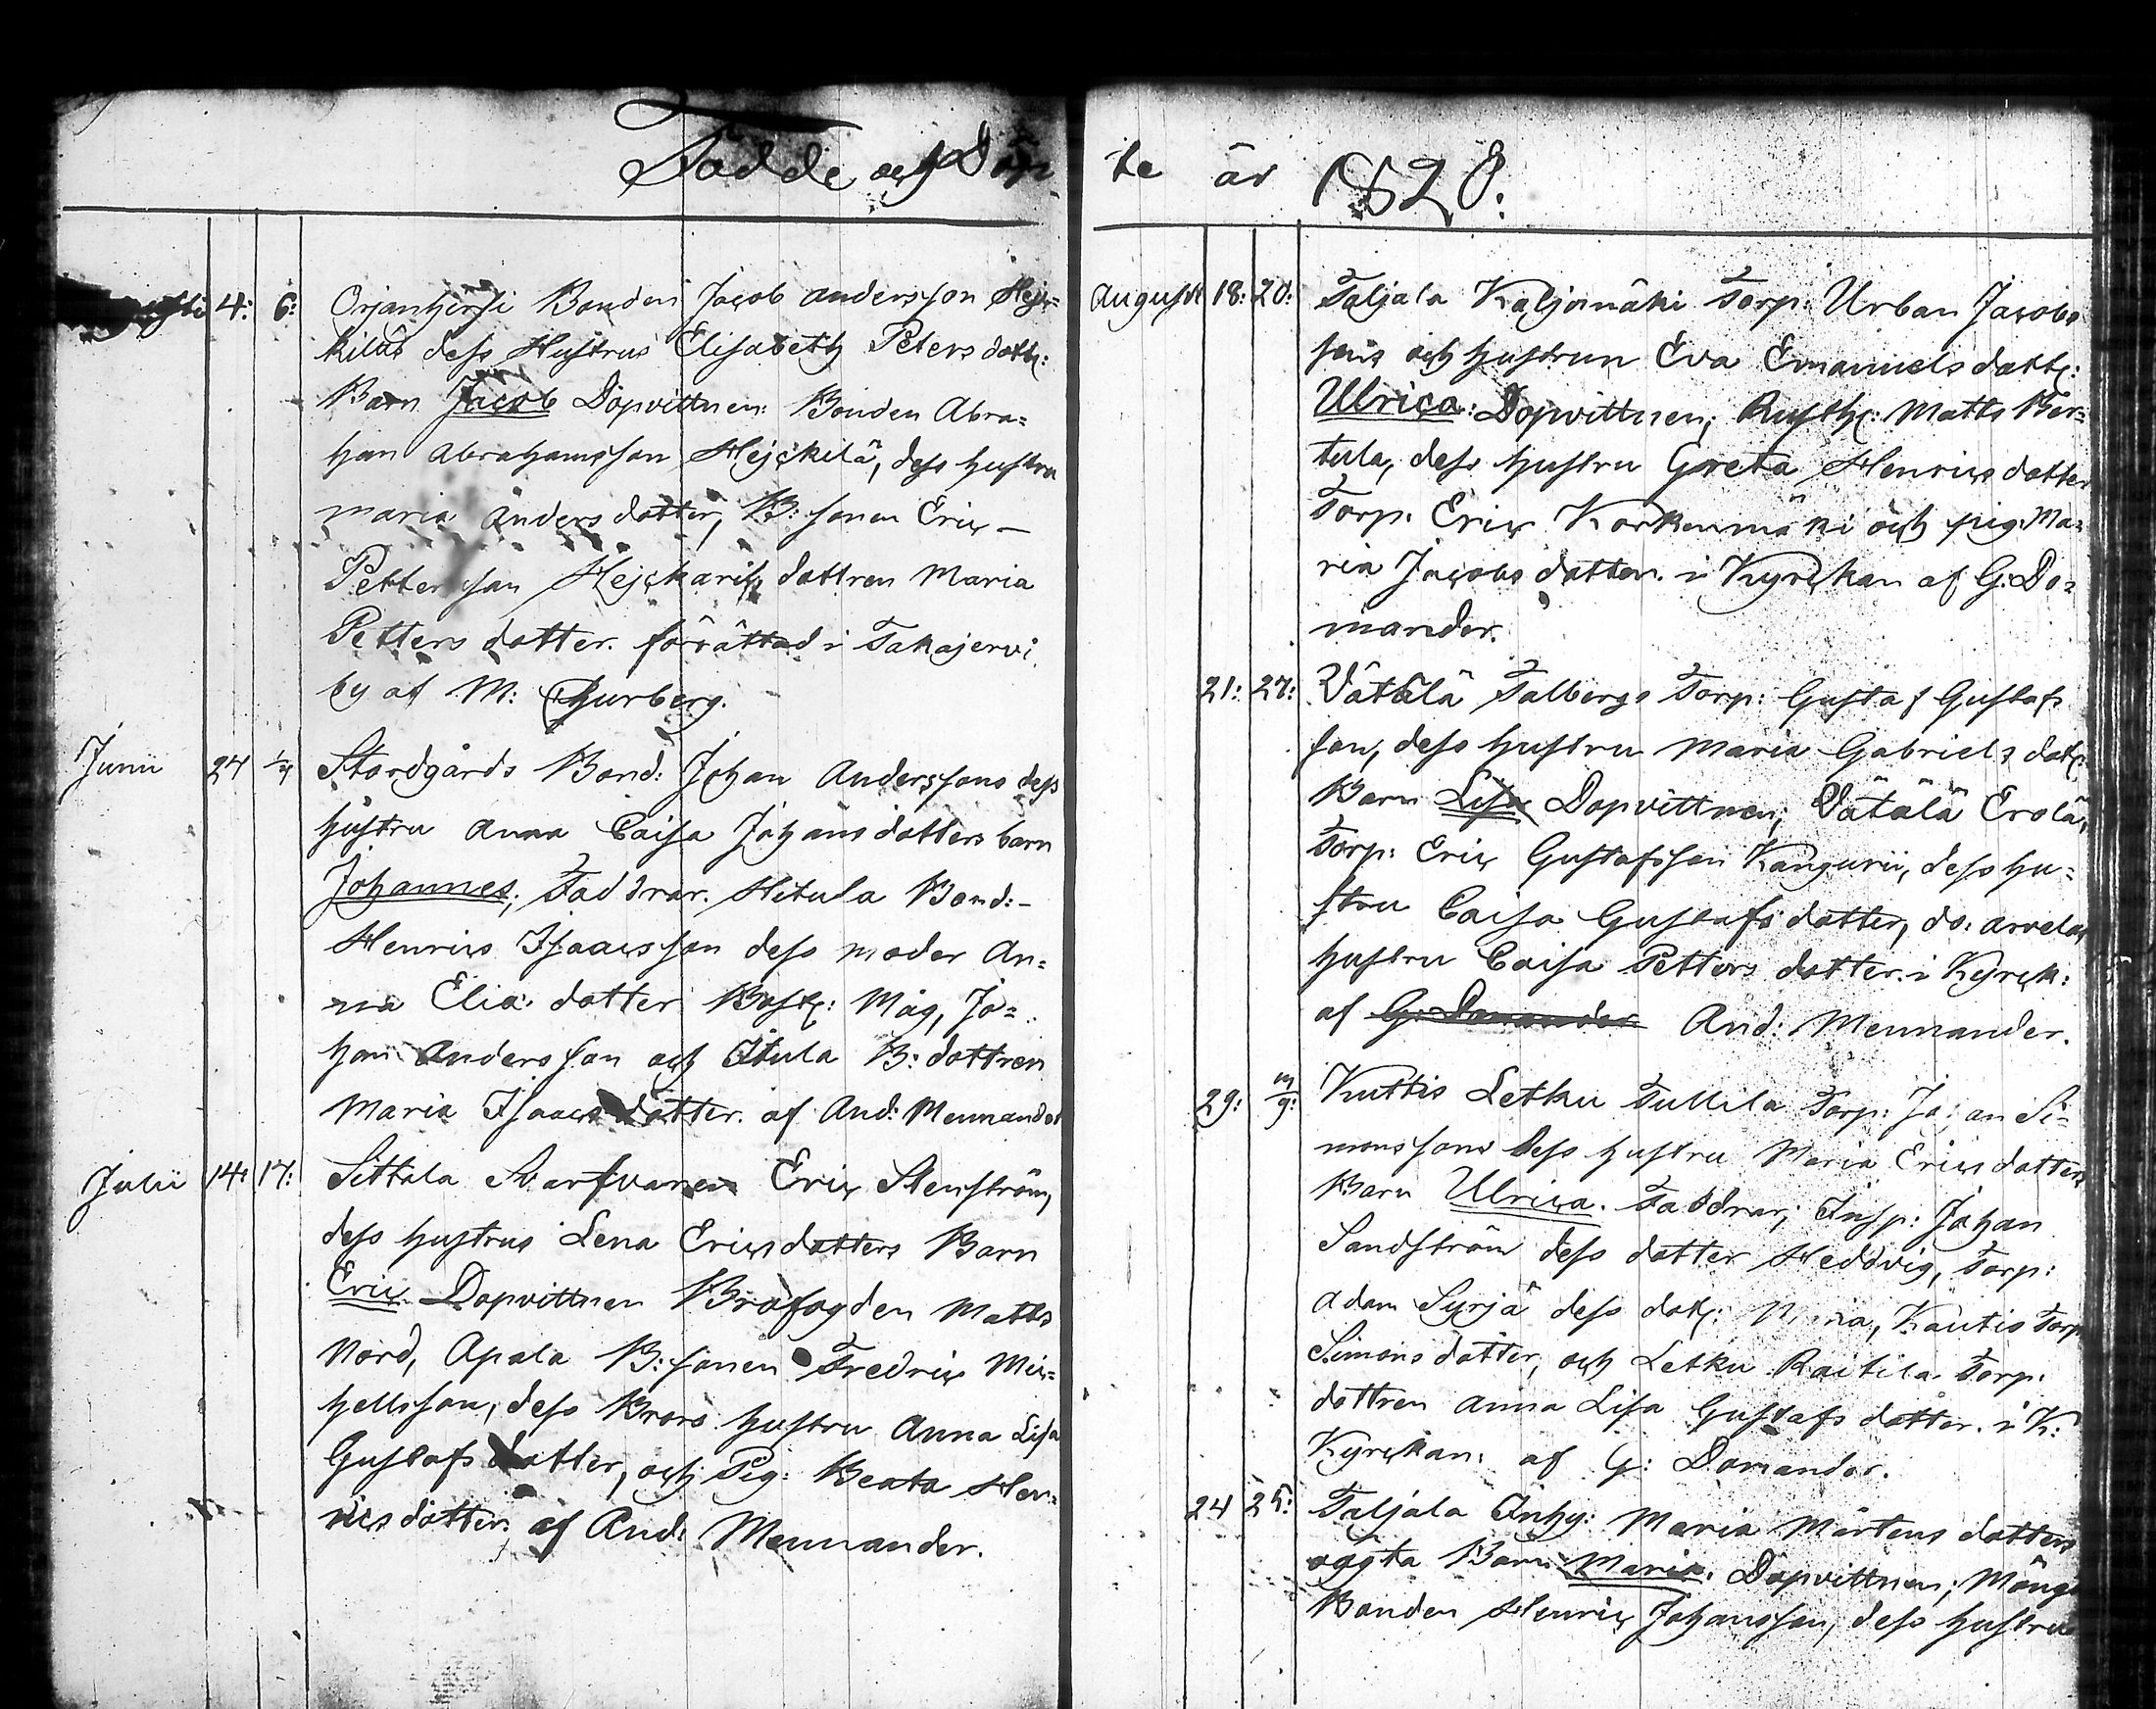 Födde och Döp
te år 1828.
4: 6: Orjanhjersi Bonden Jacob andersson Hejc=
kiläs dess Hustrus Elisabeth Peters dott:
Barn Jacob Döpvittnen: Bonden Abra=
ham Abrahamsson Hejckilä, dess hustru
maria Anders dotter, B: sonen Eric –
Pettersson Hejckarits dottren Maria
Petters dotter. förrättad i Takajervi
by af M: Thurberg.
Junii 27 1/7 Stordgårds Bond: Johan Anderssons dess
hustru Anna Caisa Johans dotters barn
Johannes; Faddrar. Hitula Bond:–
Henrics Isaacsson dess moder An=
na Elia: dotter Måg, Jo=
han Andersson och Atula B: dottren
Maria Isaacs dotter. af And: Mennander
Julii 14: 17: Sittala Svarfvaren Eric Stenström,
dess hustrus Lena Ericsdotters Barn
Eric Dopvittnen Brofogden Matts
Nord, Apala B: sonen Fredric Mic=
hellsson, dess Brors hustru Anna Lisa
Gustafs dotter, och Pig: Beata Hen=
rics dotter. af And: Mennander.
August 18: 20: Taljala Kaljomäki Torp: Urban Jacobs
sons och hustrun Eva Emanuels dott:
Ulrica: Dopvittnen; Rusth: Matts Ber=
tula, dess hustru Greta Henrics dotter
Torp: Eric Korkenmäki och pig: Ma=
ria Jacobs dotter. i Kyrckan af G: Do=
mander.
21: 27: Vätälä Talbergs Torp: Gustaf Gustafs
son, dess hustru Maria Gabriels dott:
Barn Lisa Dopvittnen; Vätälä Erolä,
Torp: Eric Gustafsson Kangurii, dess hu=
stru Caisa Gustafs dotter, do: arvelas
hustru Caisa Petters dotter. i Kyrck:
af G: Domander And: Mennander.
29: Kuttis Letku Tullila Torp: Johan Si=
monssons dess hustru Maria Erics dotters
Barn Ulrica. Faddrar; Insp: Johan
Sandström dess dotter Hedvig, Torp:
Adam Syrjä dess dott: Maria, Kautis Torp
Simons dotter, och Letku Raitila Torp.
dottren Anna Lisa Gustafs dotter. i K:
Kyrckan. af G: Domander.
24 25: Taljala Inhy: Maria Mårtens dotters
oägta Barn Maria. Dopvittnen; Mänga
Bonden Henric Johansson, dess hustru